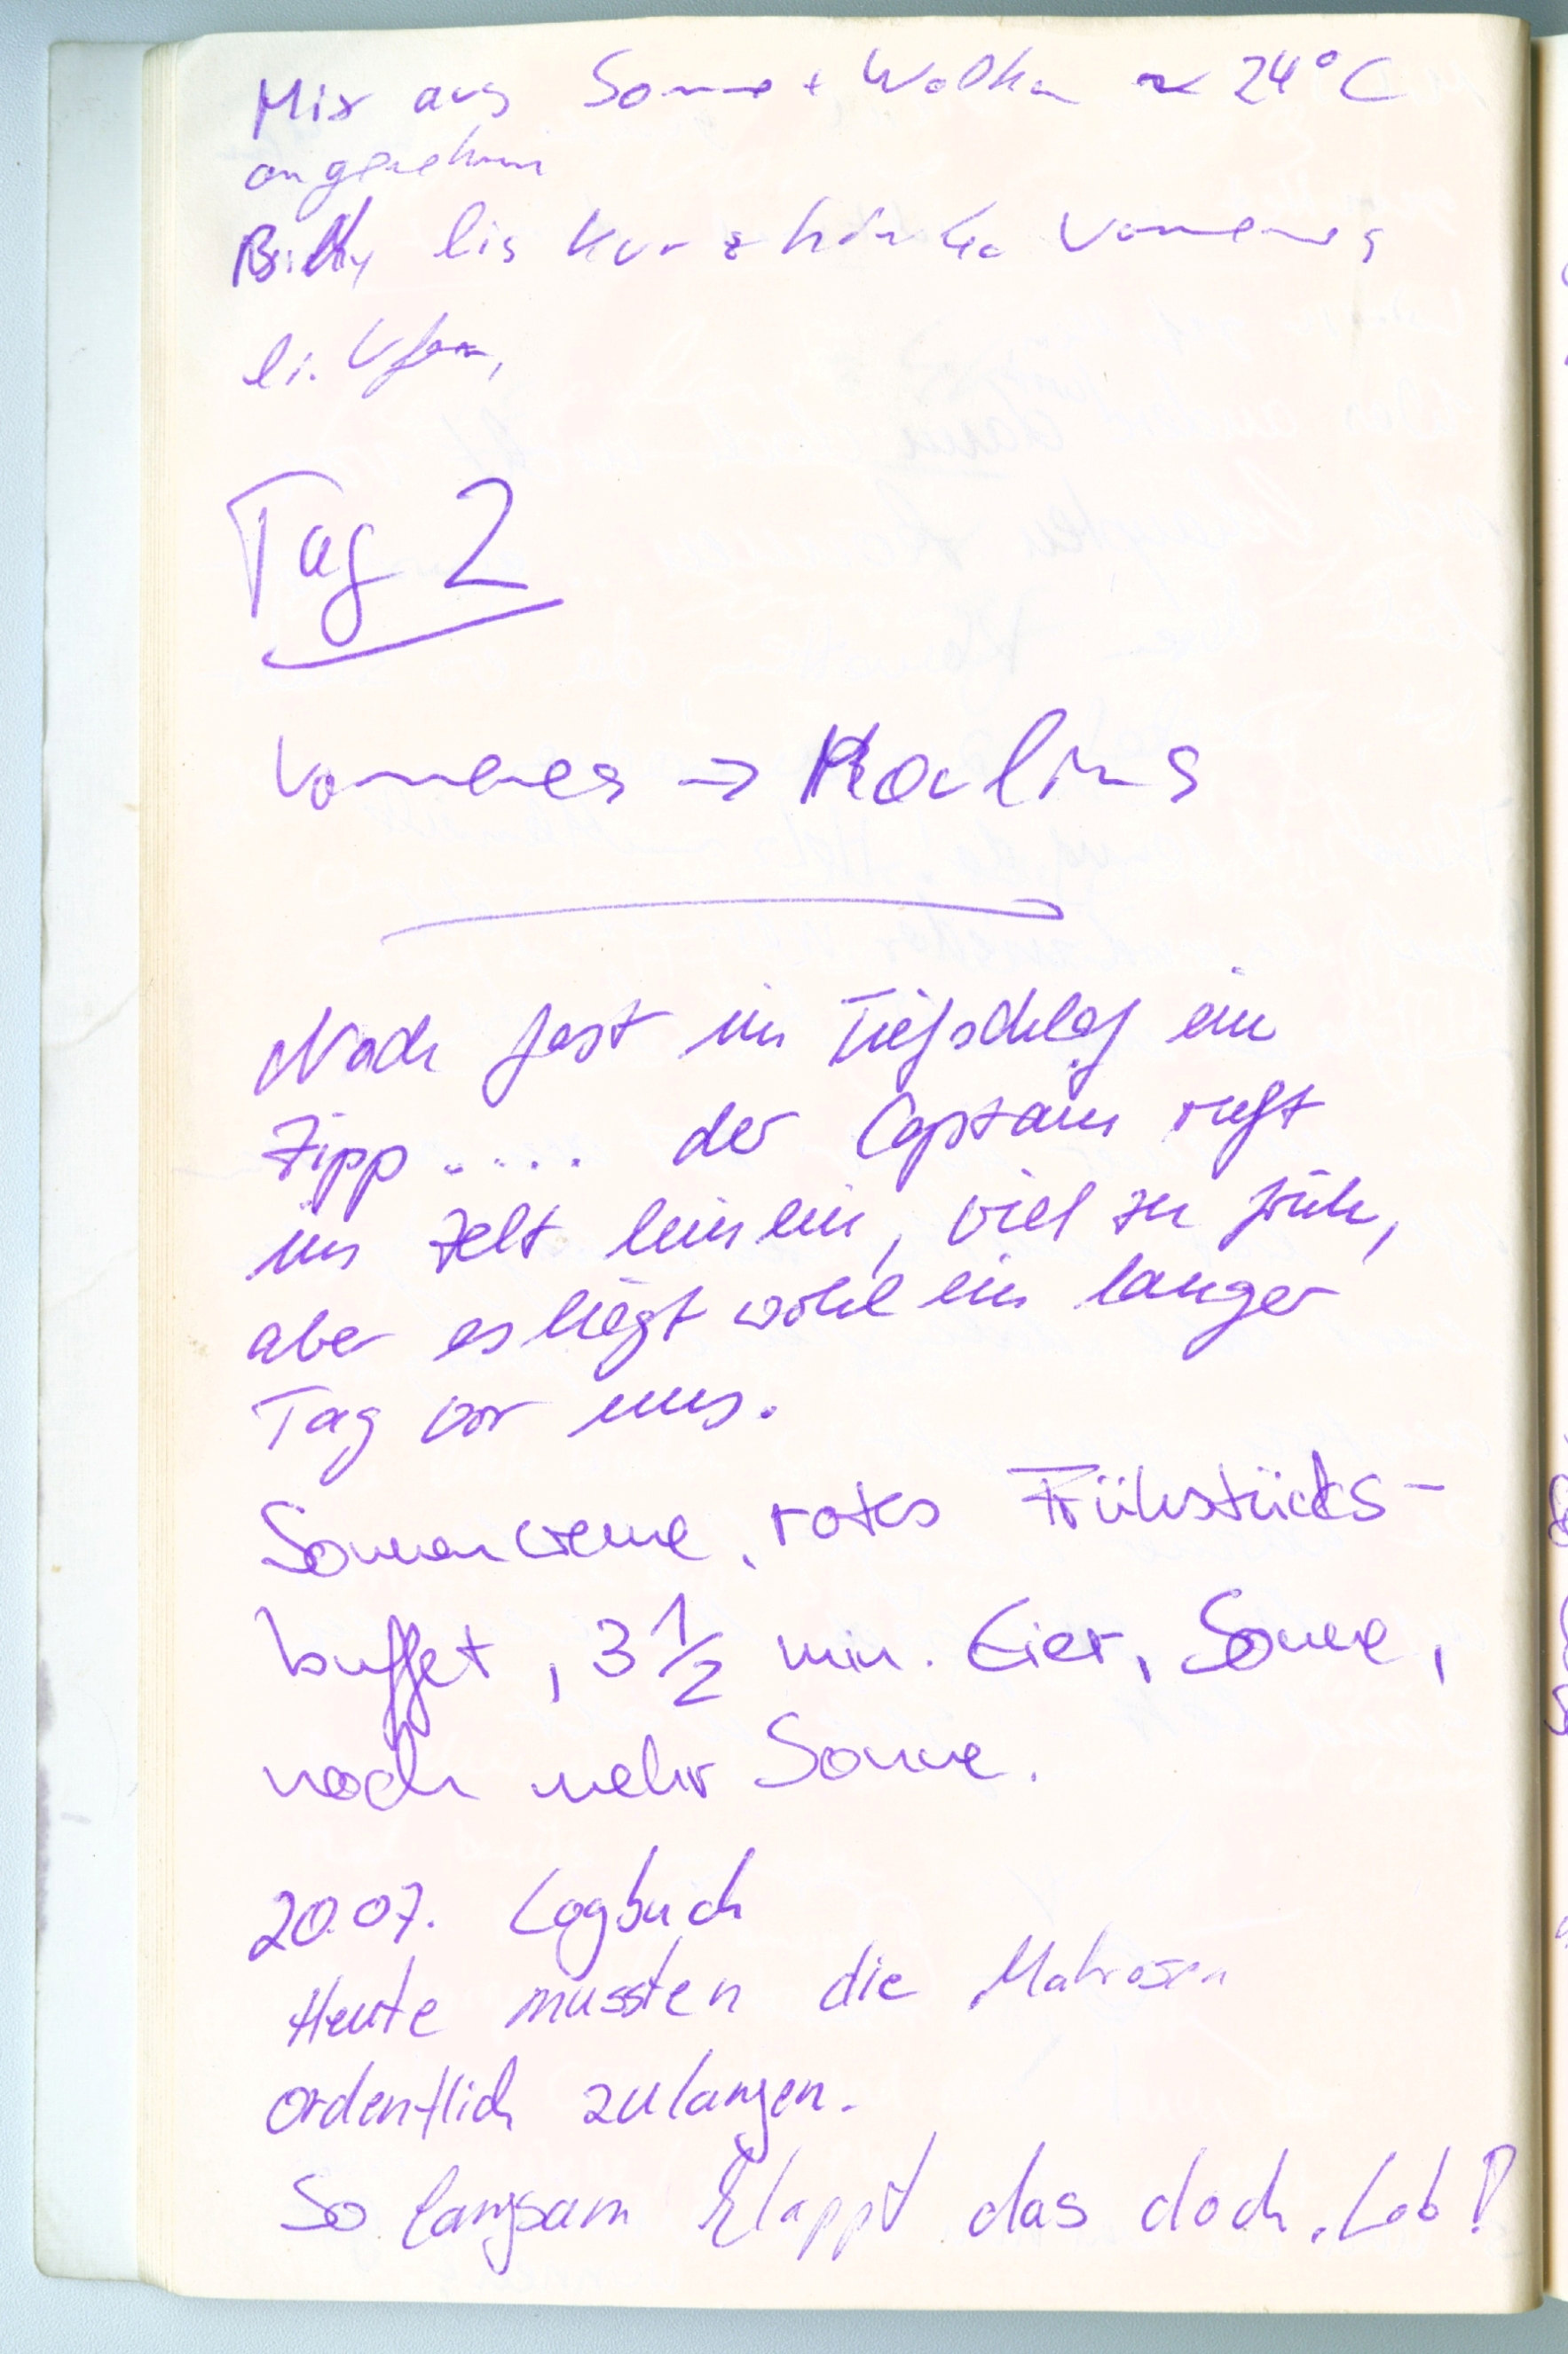 Mix aus Sonne + Wolken ≈ 24°C
angenehm
bis kurz hinter Vomenes
li. Ufer,
Tag 2
Vomenes → Moulins
Noch fast im Tiefschlaf ein
Zipp ..... der Captain ruft
ins Zelt hinein, viel zu früh,
aber es liegt wohl ein langer
Tag vor uns.
Sonnencreme, rotes Frühstücks-
buffet, 3 1/2 min. Eier, Sonne,
noch mehr Sonne.
20.07. Logbuch
Heute mussten die Matrosen
ordentlich zulangen.
So langsam klappt das doch. Lob!